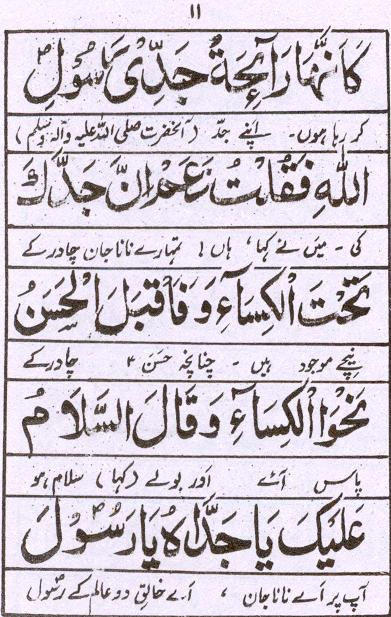 ۱۱
كَاَنَّهَا رَآئِحَةُ جَدِّىْ رَسُوْلِ
کر رہا ہوں۔ اپنے جدّ (آنحضرت صلی اللہ علیہ وآلہ وسلم)
اللهِ فَقُلْتُ نَعَمْ اِنَّ جَدَّكَ
کی - میں نے کہا، ہاں! تمہارے نانا جان چادر کے
تَحْتَ الْكِسَآءِ وَفَاَقْبَلَ الْحَسَنُ
نیچے موجود ہیں - چنانچہ حسنؑ چادر کے
نَحْوَ الْكِسَآءِ وَقَالَ السَّلَامُ
پاس آئے اور بولے (کہا) سلام ہو
عَلَيْكَ يَاجَدَّاهُ يَارَسُوْلَ
آپ پر اے نانا جان ، اے خالق دو عالم کے رسولؐ